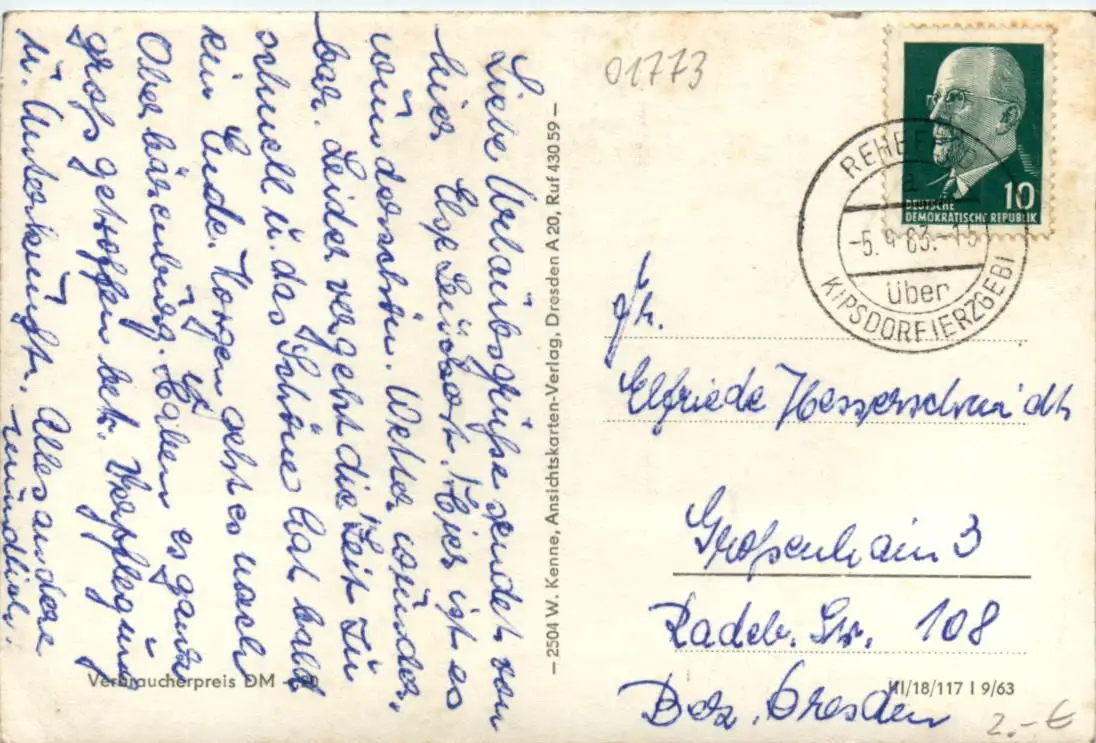 Liebe Urlaubsgrüße sendet von
hier Else Hier ist es
wunderschön. Wetter wunder-
bar. Leider vergeht die Zeit zu
schnell u. das Schöne hat bald
ein Ende. Morgen geht es nach
Oberbärenburg. Haben es ganz
groß getroffen betr. Verpflegung
u. Unterkunft. Alles andere
mündlich.
Verbraucherpreis DM –,20
– 2504 W. Kenne, Ansichtskarten-Verlag, Dresden A 20, Ruf 430 59 –
01773
10
DEUTSCHE
DEMOKRATISCHE REPUBLIK
REHEFELD
a
-5. 9 63.-15
über
KIPSDORF(ERZGEB)
Fr.
Elfriede Messerschmidt
Großenhain 3
Radeb. Str. 108
Bez. Dresden
III/18/117 I 9/63
2.- €